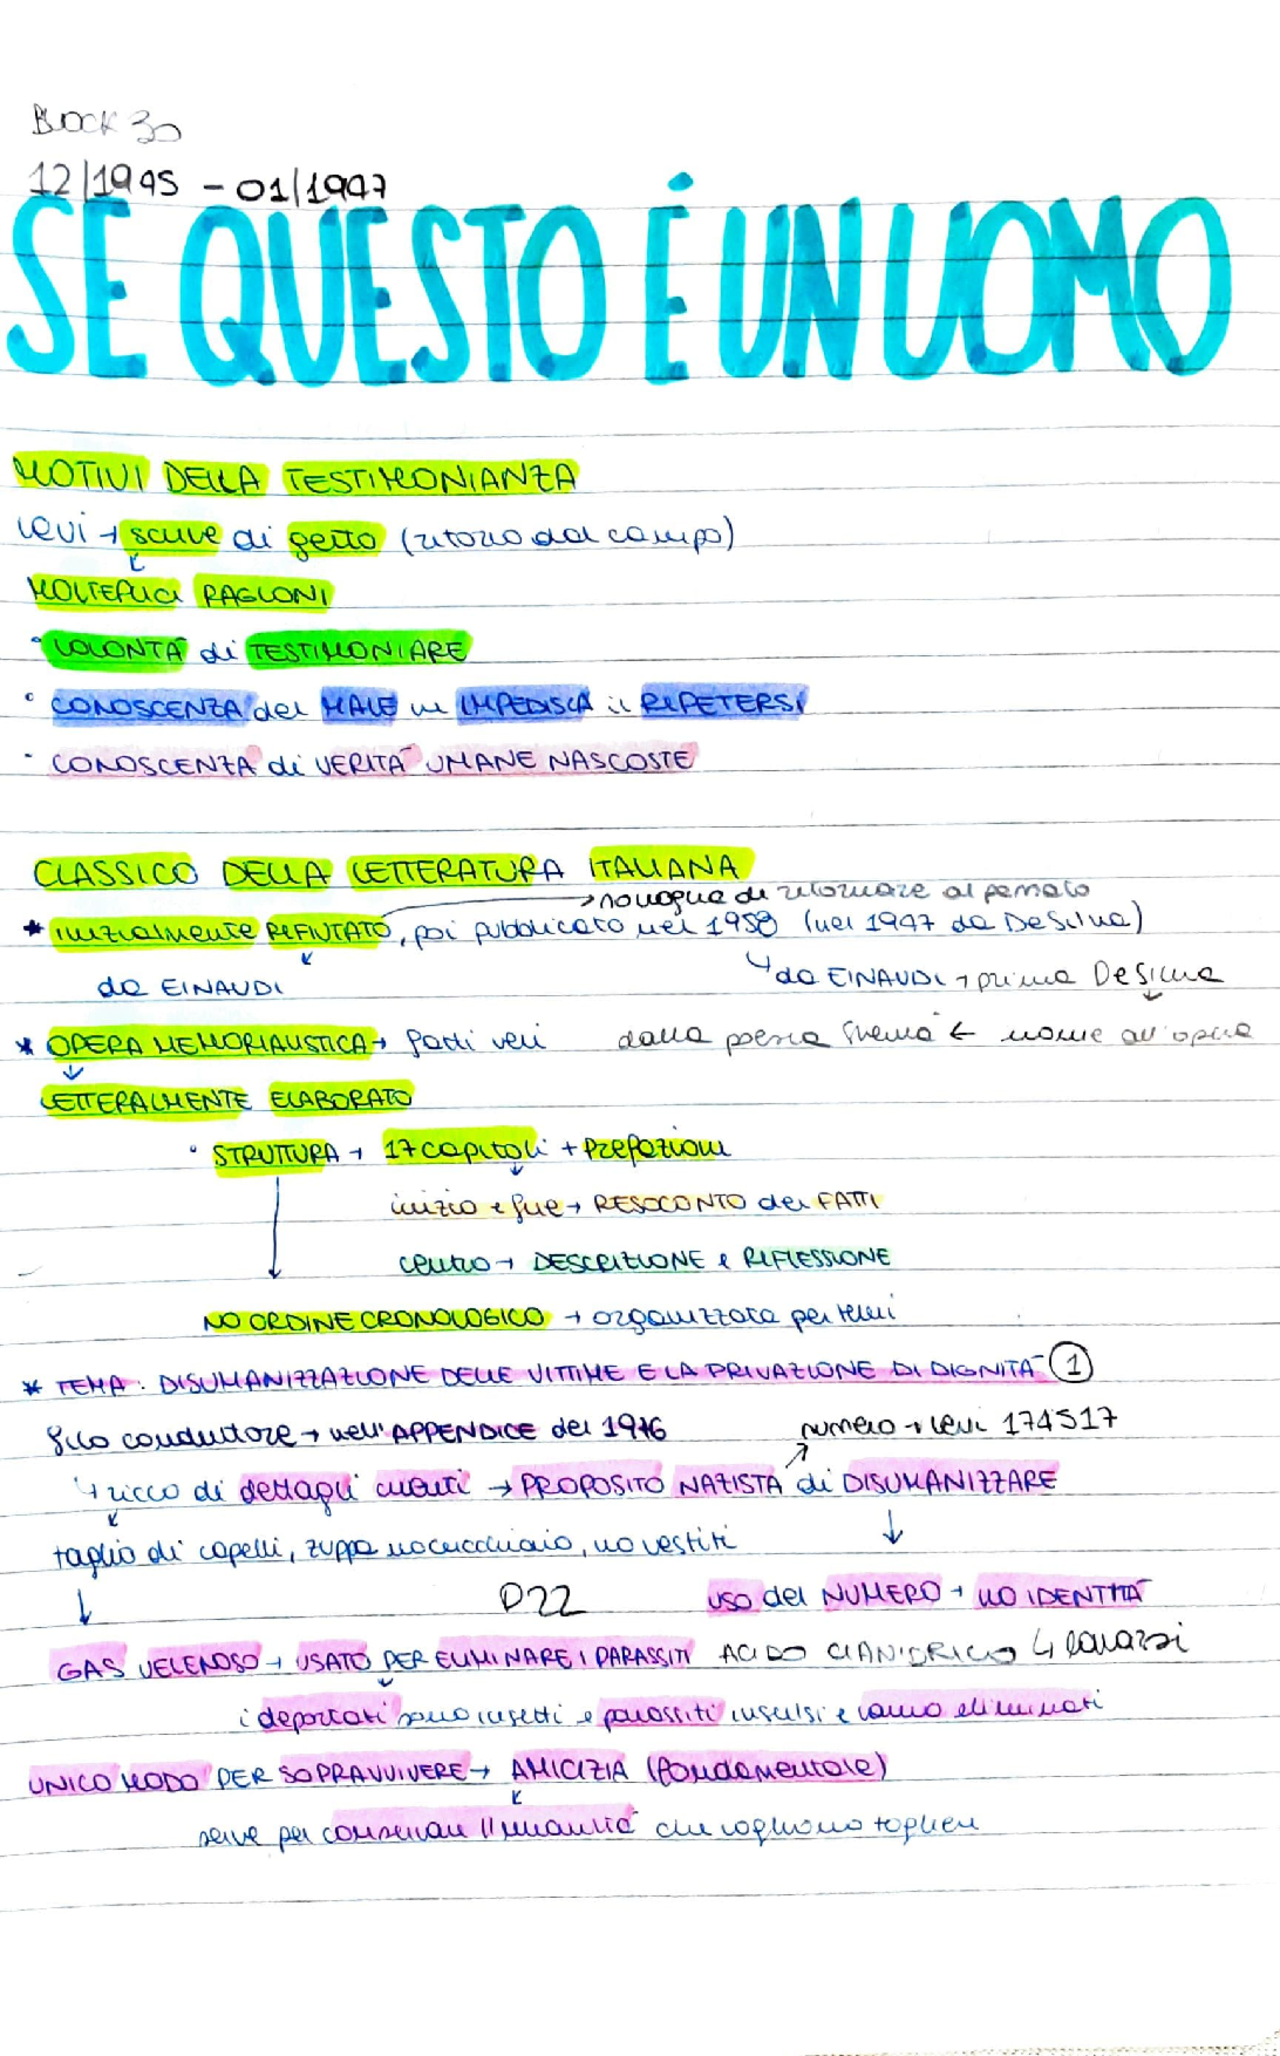 BLOCK 30
12/1945 - 01/1947
SE QUESTO É UN UOMO
MOTIVI DELLA TESTIMONIANZA
Levi → scrive di getto (ritorno dal campo)
MOLTEPLICI RAGIONI
• VOLONTÀ di TESTIMONIARE
• CONOSCENZA del MALE ne IMPEDISCA il RIPETERSI
• CONOSCENZA di VERITÀ UMANE NASCOSTE
CLASSICO DELLA LETTERATURA ITALIANA
→ no voglia di ritornare al passato
* inizialmente RIFIUTATO, poi pubblicato nel 1958 (nel 1947 da De Silva)
da EINAUDI
↳ da EINAUDI → prima De Silva
* OPERA MEMORIALISTICA → fatti veri
dalla poesia Shemà ← nome all'opera
LETTERALMENTE ELABORATO
• STRUTTURA → 17 capitoli + Prefazioni
inizio e fine → RESOCONTO dei FATTI
centro → DESCRIZIONE e RIFLESSIONE
NO ORDINE CRONOLOGICO → organizzata per temi
* TEMA: DISUMANIZZAZIONE DELLE VITTIME E LA PRIVAZIONE DI DIGNITÀ 1
filo conduttore → nell'APPENDICE del 1976
numero → Levi 174517
↳ ricco di dettagli cruenti → PROPOSITO NAZISTA di DISUMANIZZARE
taglio di capelli, zuppa no cucchiaio, no vestiti
D22
USO del NUMERO → NO IDENTITÀ
GAS VELENOSO → USATO PER ELIMINARE I PARASSITI ACIDO CIANIDRICO ↳
i deportati sono insetti e parassiti insulsi e vanno eliminati
UNICO MODO PER SOPRAVVIVERE → AMICIZIA (fondamentale)
serve per conservare l'umanità che vogliono togliere